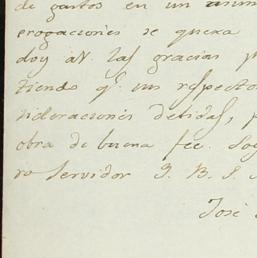 de gastos en un
erogaciones se quexa
doy á V. las gracias
tiendo q.e un respeto
sideraciones debidas,
obra de buena fee. Soy
ro servidor Q. B. S.
José